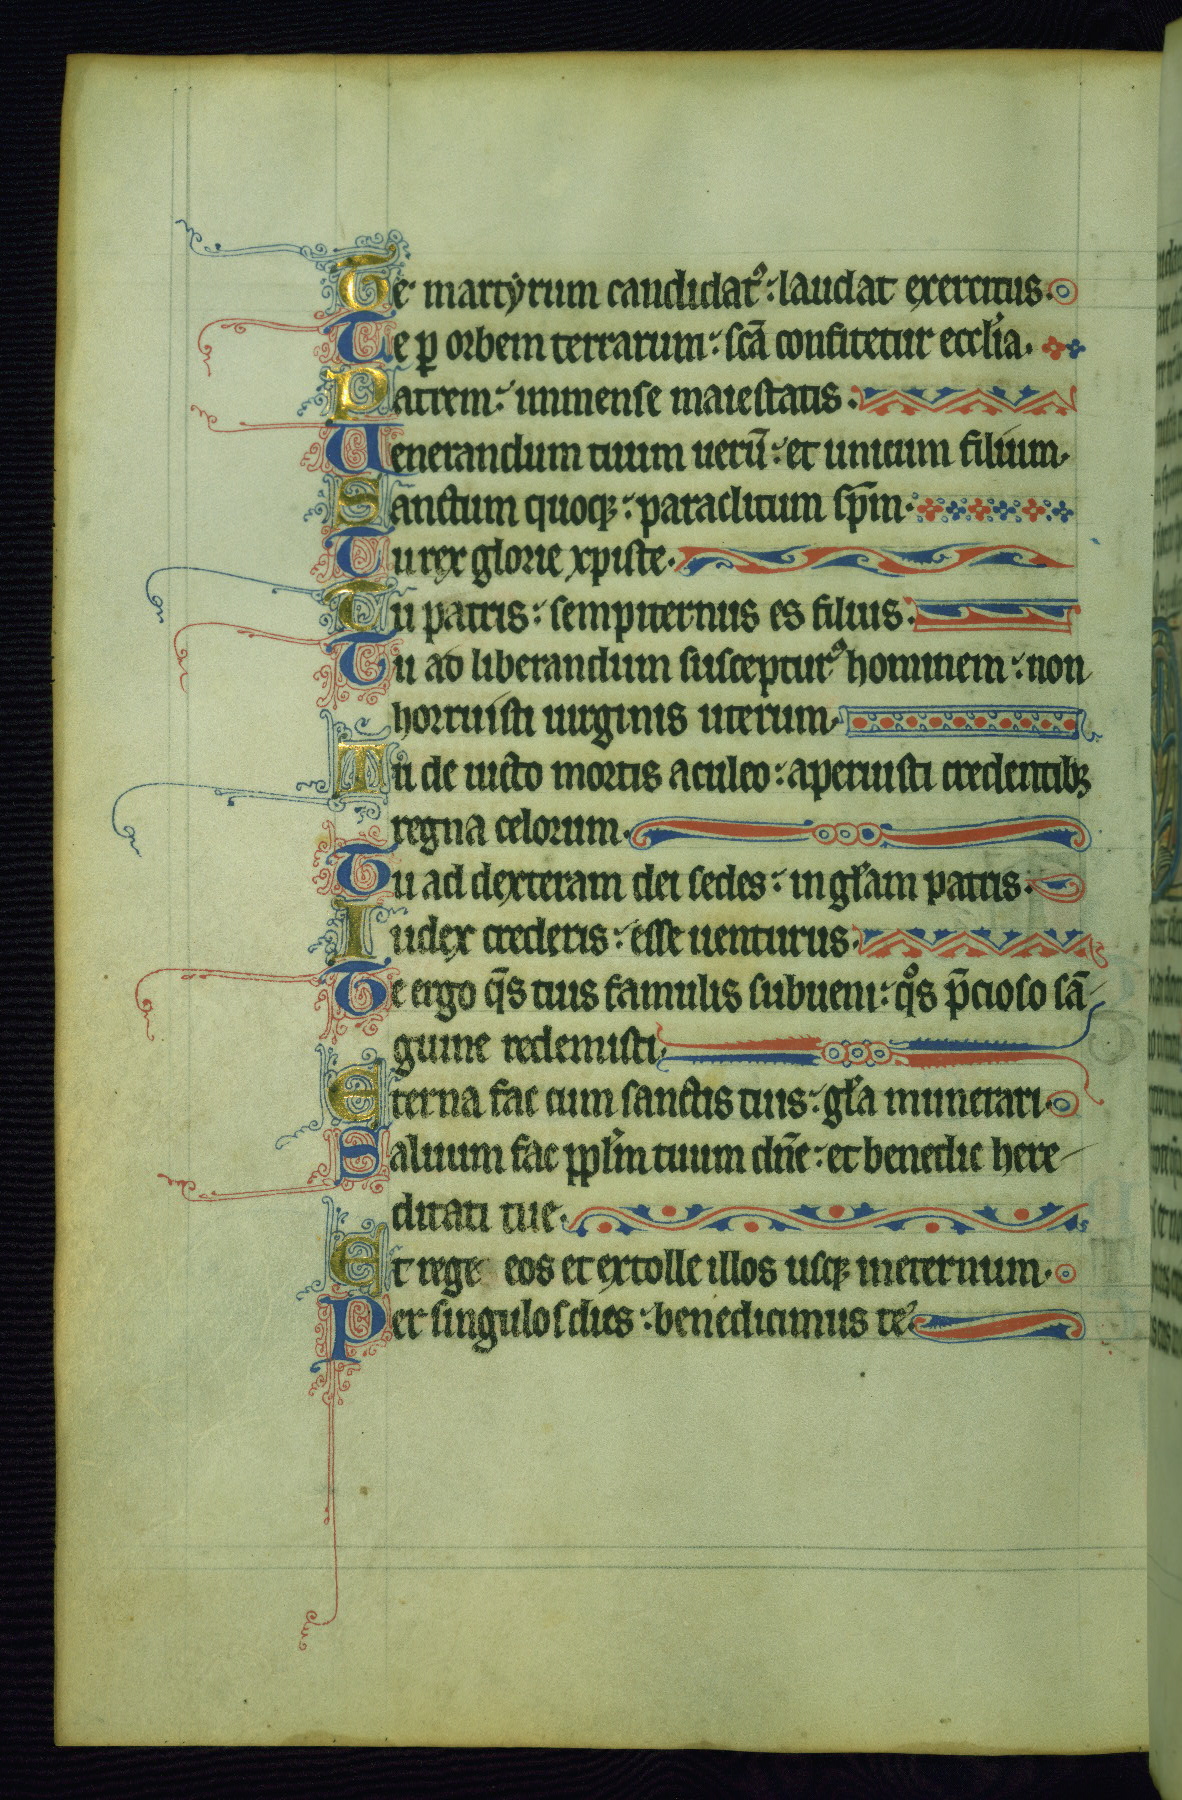 Te martyrum candidatꝰ: laudat exercitus.
Te ꝑ orbem terrarum: scā confitetur eccl̄ia.
Patrem: immense maiestatis.
Uenerandum tuum uerū: et unicum filium.
Sanctum quoqꝫ: paraclitum sp̄m.
Tu rex glorie xpiste.
Tu patris: sempiternus es filius.
Tu ad liberandum suscepturꝰ hominem: non
horruisti uirginis uterum.
Tu de uicto mortis aculeo: aperuisti credentibꝫ
regna celorum.
Tu ad dexteram dei sedes: in gl̄am patris.
Iudex crederis: esse uenturus.
Te ergo q̄s tuis famulis subueni: qͦs p̄cioso sā
guine redemisti.
Eterna fac cum sanctis tuis: gl̄a munerari.
Saluum fac ppl̄m tuum dn̄e: et benedic here
ditati tue.
Et rege eos et extolle illos usqꝫ ineternum.
Per singulos dies: benedicimus te.